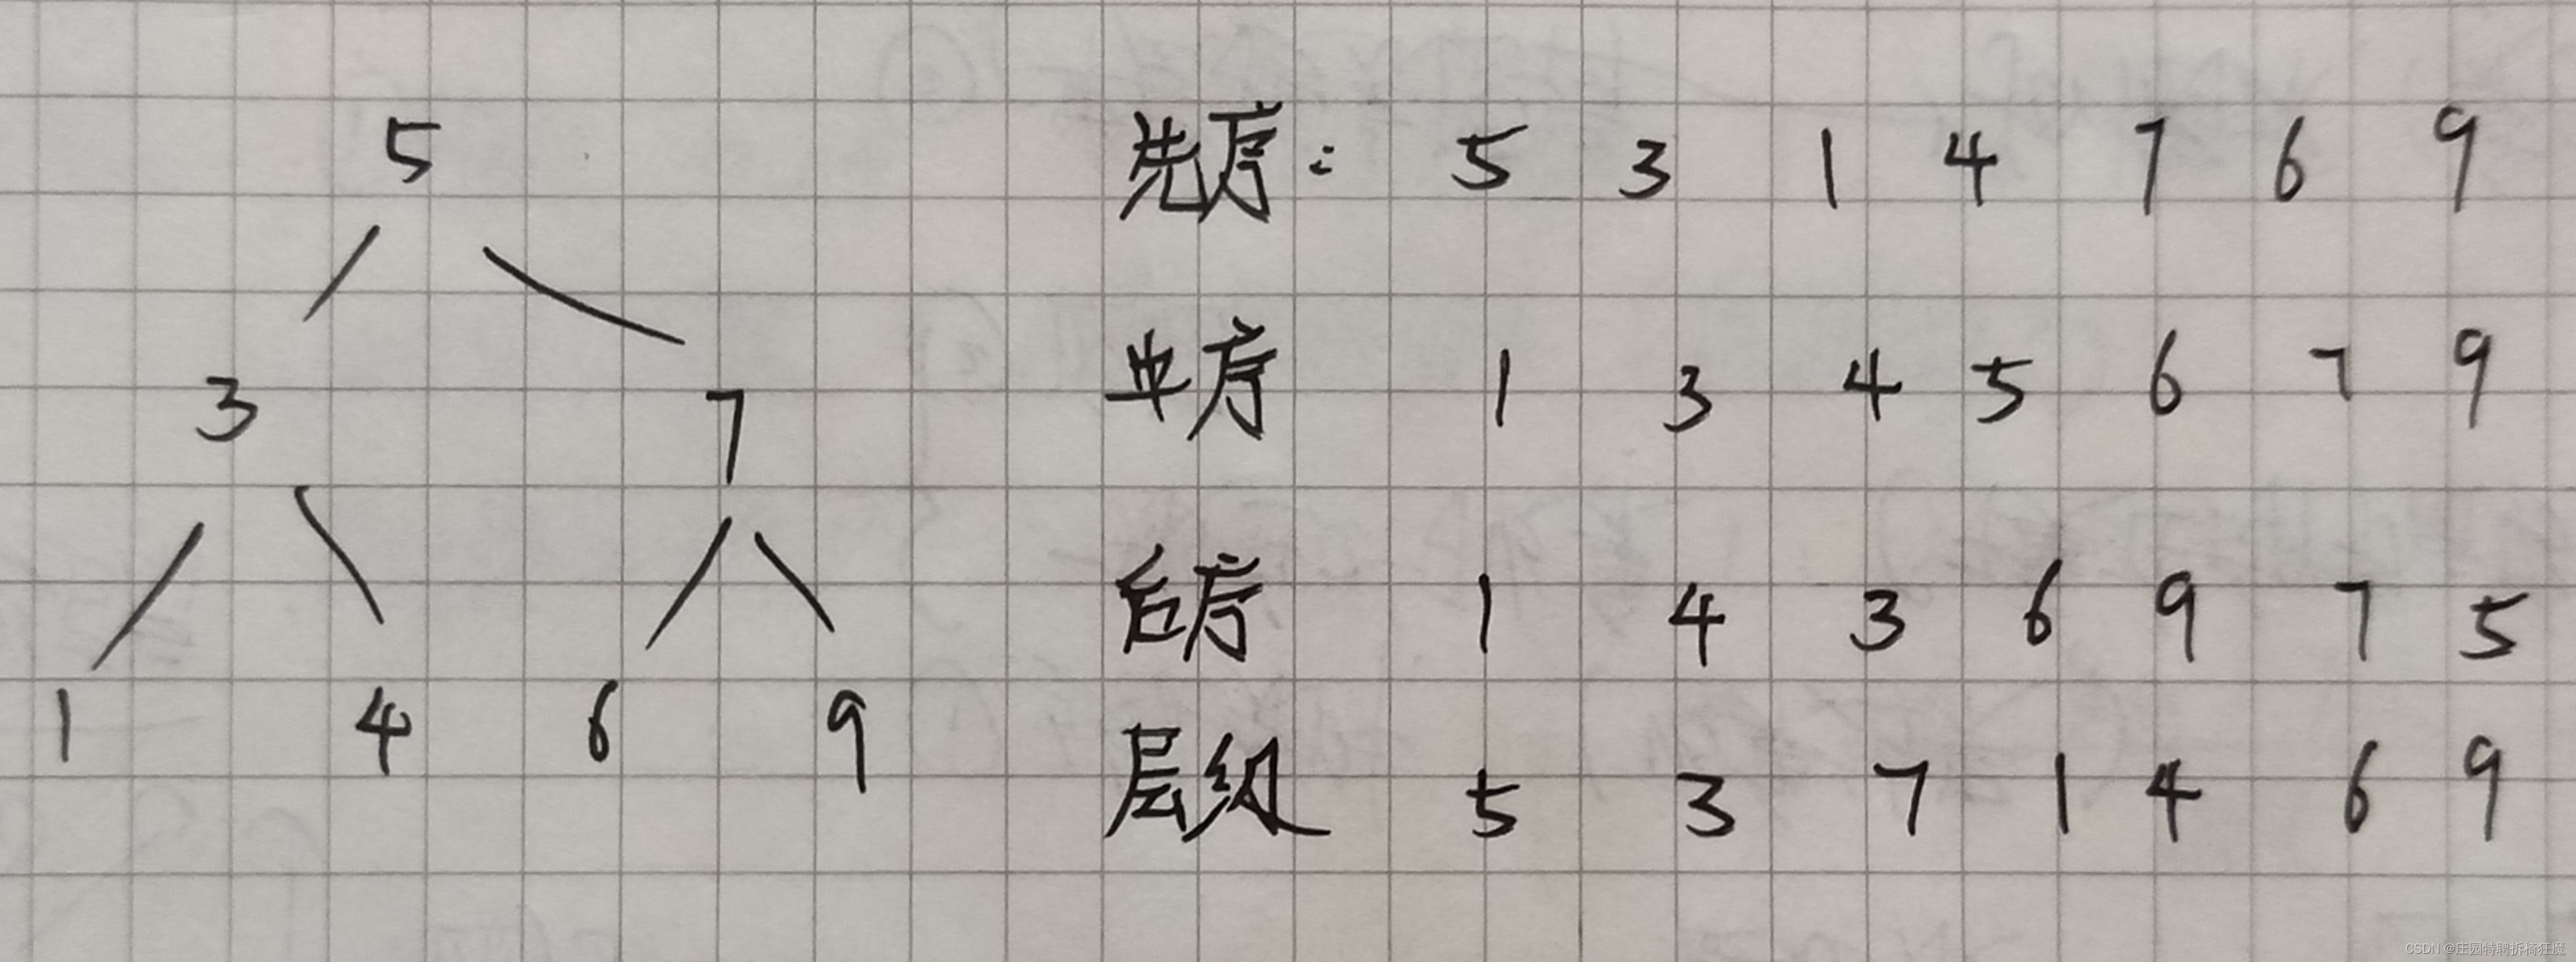 5
3 7
1 4 6 9
先序: 5 3 1 4 7 6 9
中序 1 3 4 5 6 7 9
后序 1 4 3 6 9 7 5
层级 5 3 7 1 4 6 9
CSDN @庄园特聘拆椅狂魔